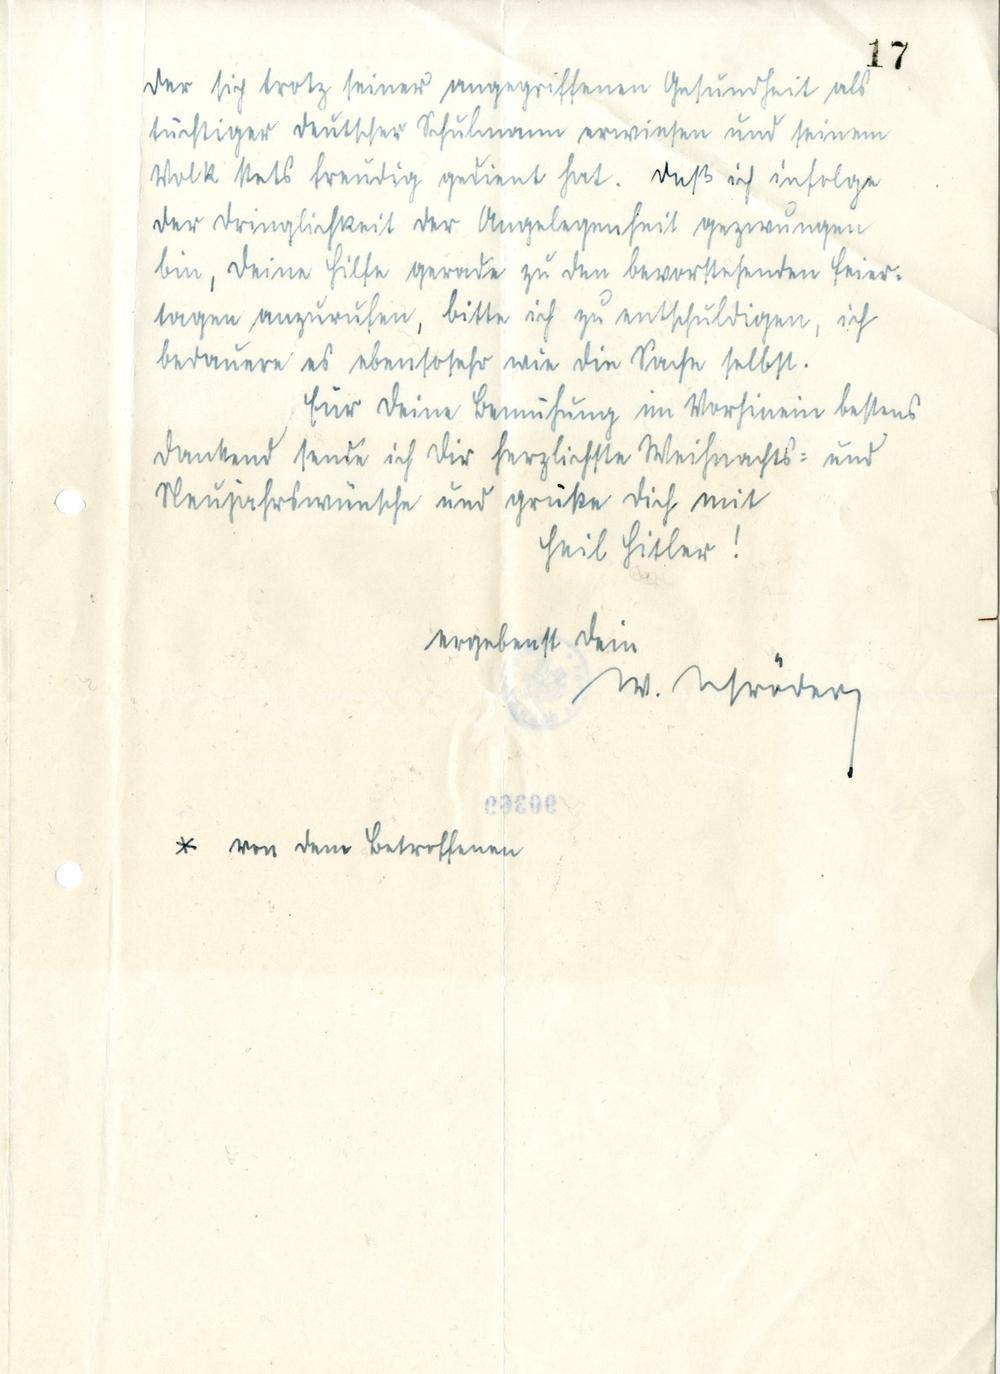 17
der sich trotz seiner angegriffenen Gesundheit als
tüchtiger deutscher Schulmann erwiesen und seinem
Volk stets freudig gedient hat. Daß ich infolge
der Dringlichkeit der Angelegenheit gezwungen
bin, Deine Hilfe gerade zu den bevorstehenden Feier-
tagen anzurufen, bitte ich zu entschuldigen, ich
bedauere es ebensosehr wie die Sache selbst.
Für Deine Bemühung im Vorhinein bestens
dankend sende ich Dir herzlichste Weihnachts= und
Neujahrswünsche und grüße Dich mit
Heil Hitler !
ergebenst Dein
W. Schröder
* von dem Betroffenen